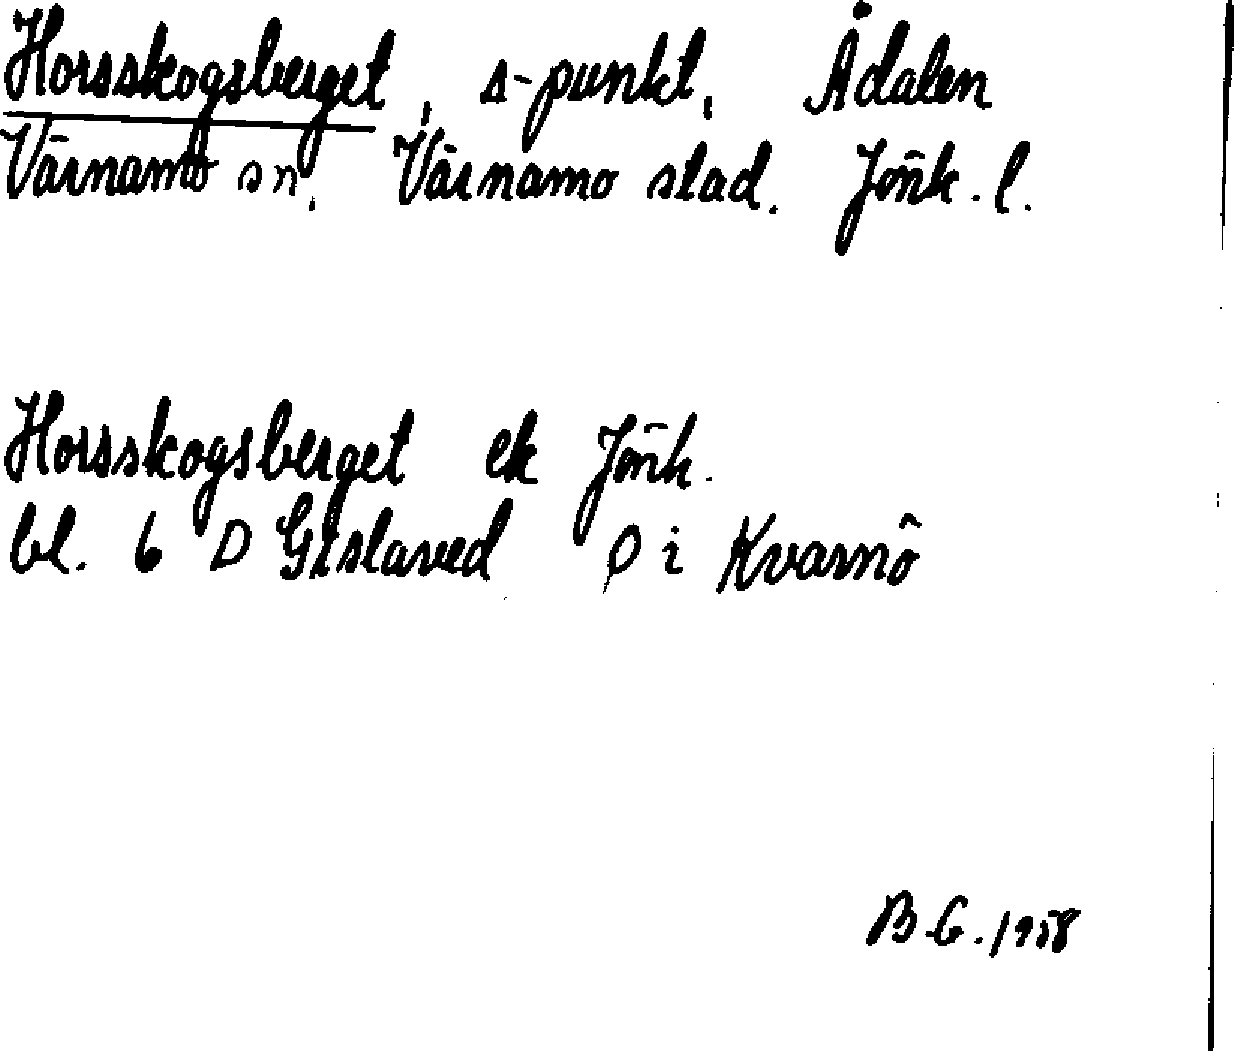 Horsskogsberget, s-punkt, Ådalen
Värnamo sn, Värnamo stad. Jönk. l.
Horsskogsberget ek Jönk.
bl. 6 D Gislaved O i Kvarnö
B.G. 1958